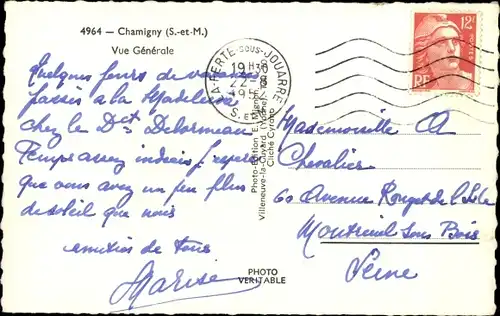 4964 — Chamigny (S.-et-M.)
Vue Générale
Quelques jours de vacances
passés à la Madeleine
chez le Dct Delormeau
Temps assez indécis. J'espère
que vous avez un peu plus
de soleil que nous
amitiés de tous
Marise
LA FERTE-SOUS-JOUARRE
19 H 30
S. ET M.
12F
RF
Photo-Edition E. Mignon
Villeneuve-la-Guyard (Yonne)
Cliché Cyrano
PHOTO
VERITABLE
Mademoiselle A
Chevalier
60 Avenue Rouget de l'Isle
Montreuil sous Bois
Seine